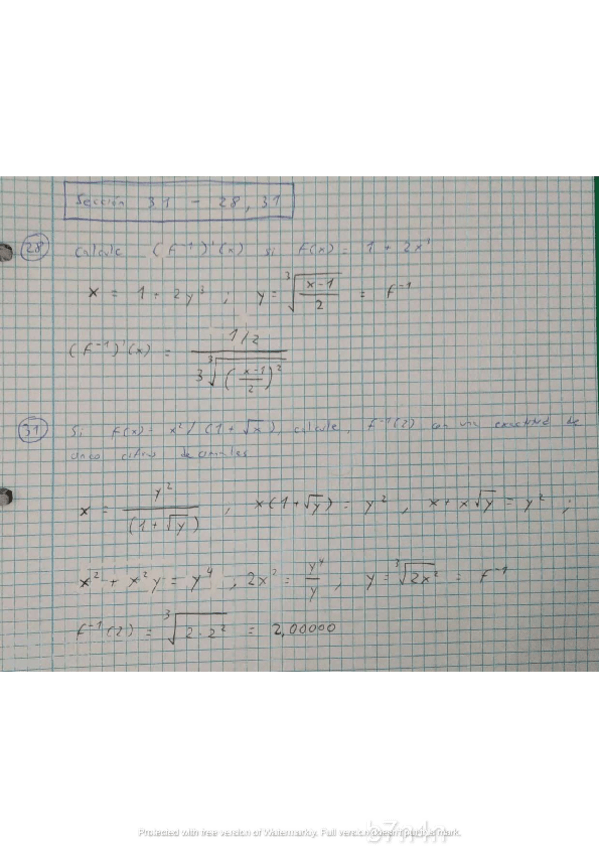 Sección 3.1 - 28, 31
28 Calcule (f⁻¹)'(x) si f(x) = 1 + 2x³
x = 1 + 2y³ ; y = ∛((x-1)/2) = f⁻¹
(f⁻¹)'(x) = (1/2) / (3∛(((x-1)/2)²))
31 Si f(x) = x² / (1 + √x), calcule, f⁻¹(2) con una exactitud de
cinco cifras decimales
x = y² / (1 + √y) , x(1 + √y) = y² , x + x√y = y² ;
x² + x²y = y⁴ , 2x² = y⁴/y , y = ∛(2x²) = f⁻¹
f⁻¹(2) = ∛(2·2²) = 2,00000
Protected with free version of Watermarkly. Full version doesn't put this mark.